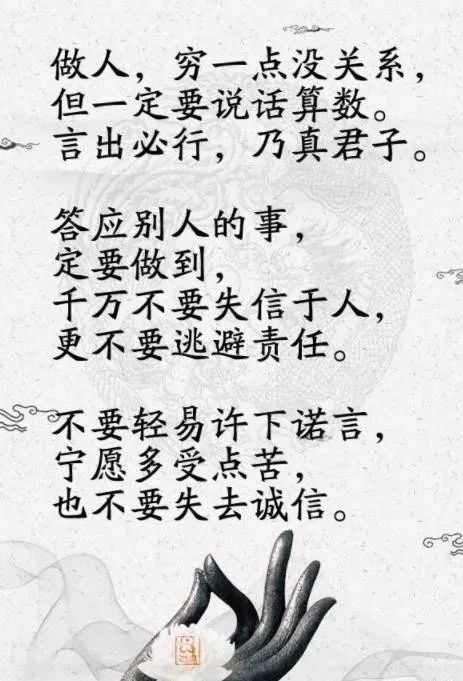 做人，穷一点没关系，
但一定要说话算数。
言出必行，乃真君子。
答应别人的事，
定要做到，
千万不要失信于人，
更不要逃避责任。
不要轻易许下诺言，
宁愿多受点苦，
也不要失去诚信。